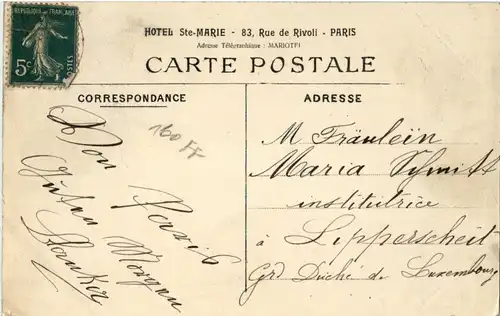 REPUBLIQUE FRANÇAISE
5c
POSTES
HOTEL Ste-MARIE - 83, Rue de Rivoli - PARIS
Adresse Télégraphique : MARIOTEI
CARTE POSTALE
CORRESPONDANCE
Von Paris
Guten Morgen
160 FF
ADRESSE
M Fräulein
Maria Schmitt
institutrice
à Lipperscheit
Grd Duché de Luxembourg